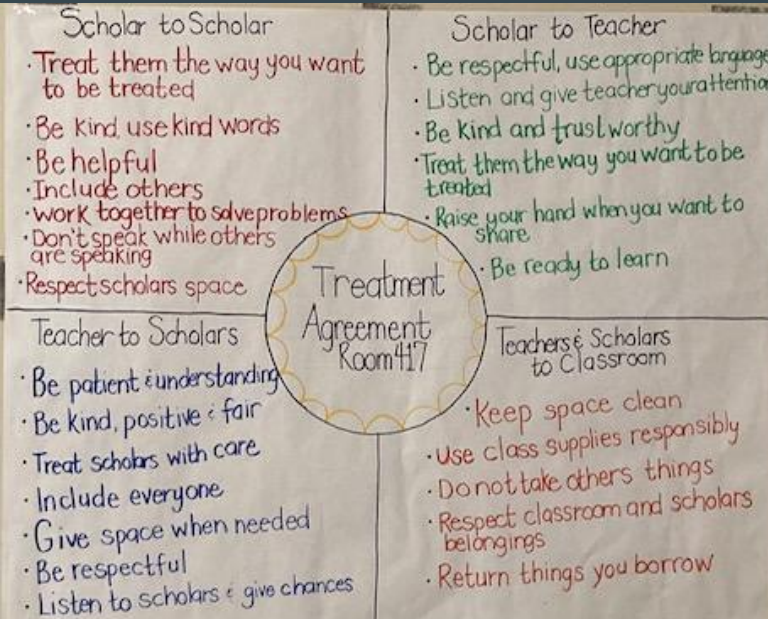 Scholar to Scholar
· Treat them the way you want
to be treated
· Be kind, use kind words
· Be helpful
· Include others
· work together to solve problems
· Don't speak while others
are speaking
· Respect scholars space
Scholar to Teacher
· Be respectful, use appropriate language
· Listen and give teacher your attention
· Be kind and trustworthy
· Treat them the way you want to be
treated
· Raise your hand when you want to
share
· Be ready to learn
Treatment
Agreement
Room 417
Teacher to Scholars
· Be patient & understanding
· Be kind, positive & fair
· Treat scholars with care
· Include everyone
· Give space when needed
· Be respectful
· Listen to scholars & give chances
Teachers & Scholars
to Classroom
· Keep space clean
· Use class supplies responsibly
· Do not take others things
· Respect classroom and scholars
belongings
· Return things you borrow